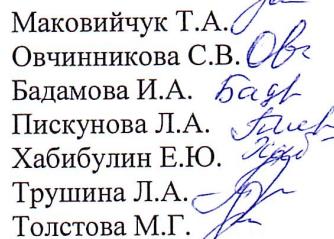 Маковийчук Т.А.
Овчинникова С.В.
Бадамова И.А.
Пискунова Л.А.
Хабибулин Е.Ю.
Трушина Л.А.
Толстова М.Г.